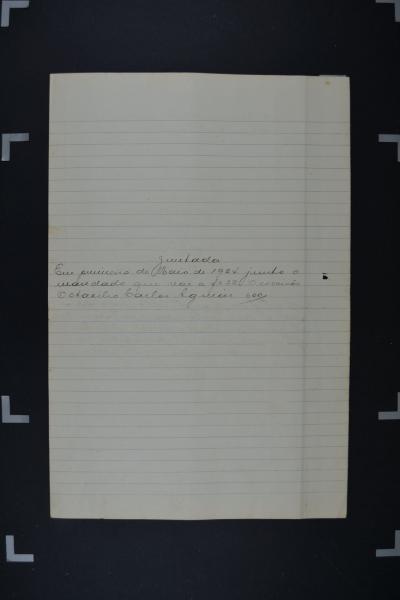 Juntada
Em primeiro de Maio de 1924 junto o
mandado que vae a fs 33. O escrivão
Octacilio Carlos Aguiar 600